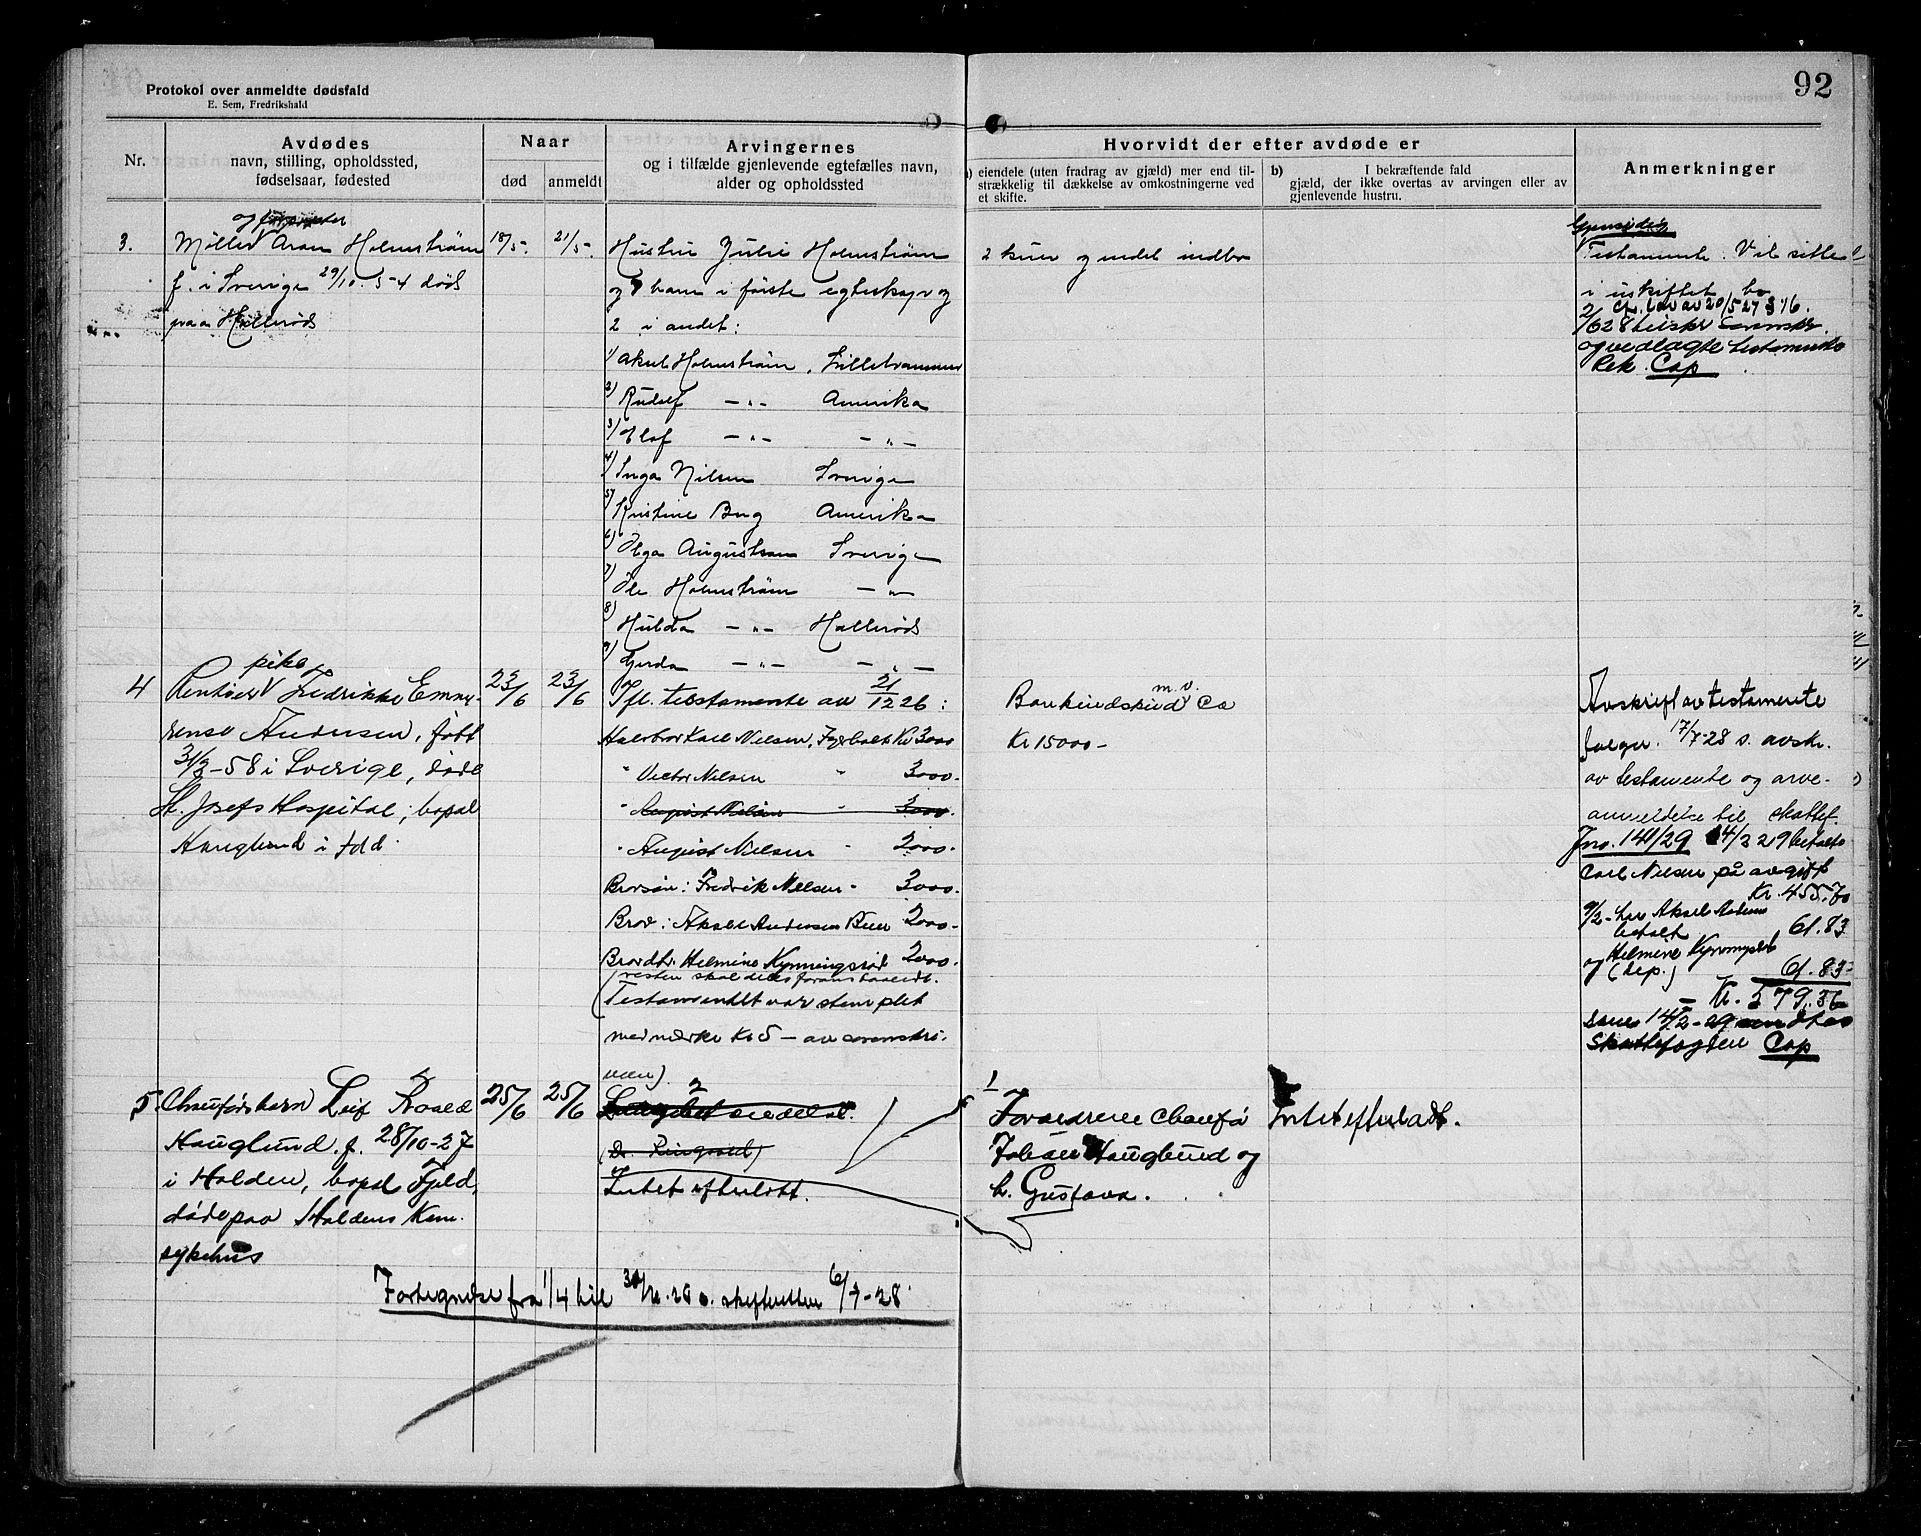 92
Protokol over anmeldte dødsfald
E. Sem, Fredrikshald
Nr.
Avdødes
navn, stilling, opholdssted,
fødselsaar, fødested
Naar
død
anmeldt
Arvingernes
og i tilfælde gjenlevende egtefælles navn,
alder og opholdssted
Hvorvidt der efter avdøde er
eiendele (uten fradrag av gjæld) mer end til-
strækkelig til dækkelse av omkostningerne ved
et skifte.
b) I bekræftende fald
gjæld, der ikke overtas av arvingen eller av
gjenlevende hustru.
Anmerkninger
og
3.
Møller Aron Holmstrøm
f. i Sverige 29/10. 54 død
paa Hallerød
18/5.
21/5.
Hustru Julie Holmstrøm
og barn i første egteskap og
2 i andet:
1) Aksel Holmstrøm, Lilletrammen
2) Rudolf -"- Amerika
3) Olof -"- -"-
4) Inga Nilsen Sverige
5) Kristine Berg Amerika
6) Olga Augustson Sverige
7) Ole Holmstrøm -"-
8) Hulda -"- Hallerød
9) Gerda -"- -"-
2 kuer og endel indbo
Gjensidig
Testamente. Vil sitte
i uskiftet bo
og vedlagte testamente
Rek. Cap
4
pike
Rentier Fredrikke Emme-
rense Andersen, født
31/3-58 i Sverige, døde
St. Josefs Hospital, bopæl
Hauglund i Idd.
23/6
23/6
Ifl. testamente av 21/12 26:
Halvbror Karl Nielsen, Kr 3000
" Victor Nielsen " 3000.
" August Nielsen " 3000.
" August Nielsen " 2000.
Brorsøn: Fredrik Nielsen - 3000.
Bror: Aksel Andersen Buer 2000-
Brordtr. Helmine Kynningsrød 2000.
(resten skal deles foranstaaende.
(Testamentet var stemplet
med merke Kr 5 - av svenske.
Bankindskud m.v. ca
Kr 15000-
Avskrift av testamente
følger. 17/7-28 s. avskr.
av testamente og arve-
anmeldelse til skattef.
Jno. 141/29 14/2 29 betalte
Carl Nielsen på avgift
Kr. 455.70
9/2- her Aksel
betalt 61.83
og Helmine
(dep.) 61.83
Kr. 579.36
14/2-29 sendt
Skattefogden Cap
5.
Chaufførbarn Leif Roald
Hauglund. f. 28/10-27
i Halden, bopæl Fjeld,
døde paa Haldens Kom.
sykehus
25/6
25/6
2
(Dr. Ringvold)
Intet efterlatt.
1
Forældrene chaufør
Johan Hauglund og
h. Gustava.
Intet efterladt.
Fortegnelse fra 1/4 til 30/6.28 s. skifteretten 6/7-28